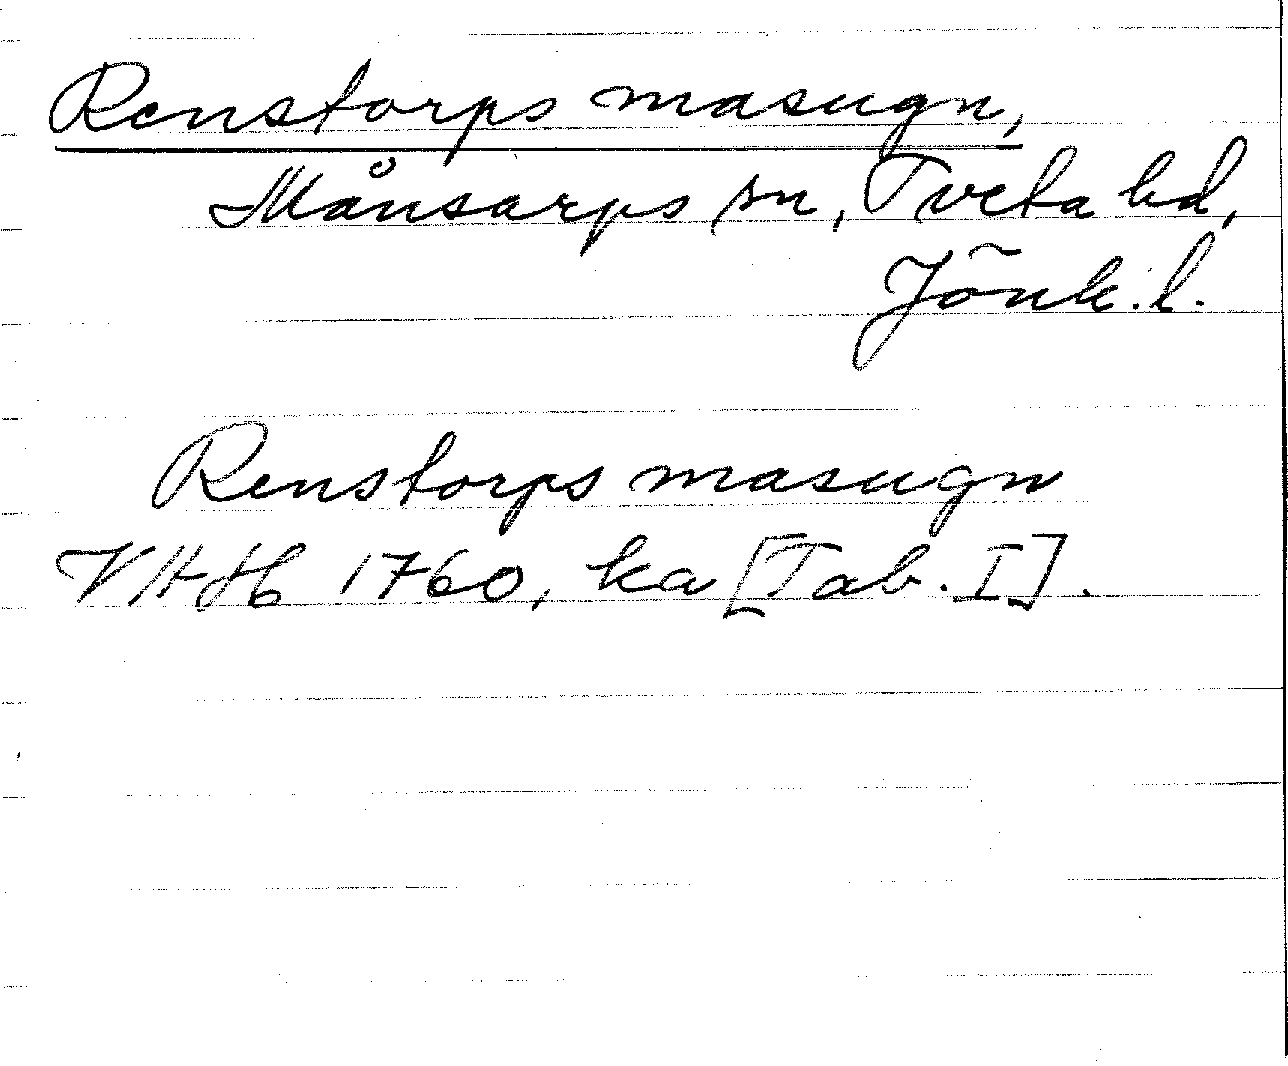 Renstorps masugn,
Månsarps sn, Tveta hd,
Jönk. l.
Renstorps masugn
VAH 1760, ka [Tab. I].